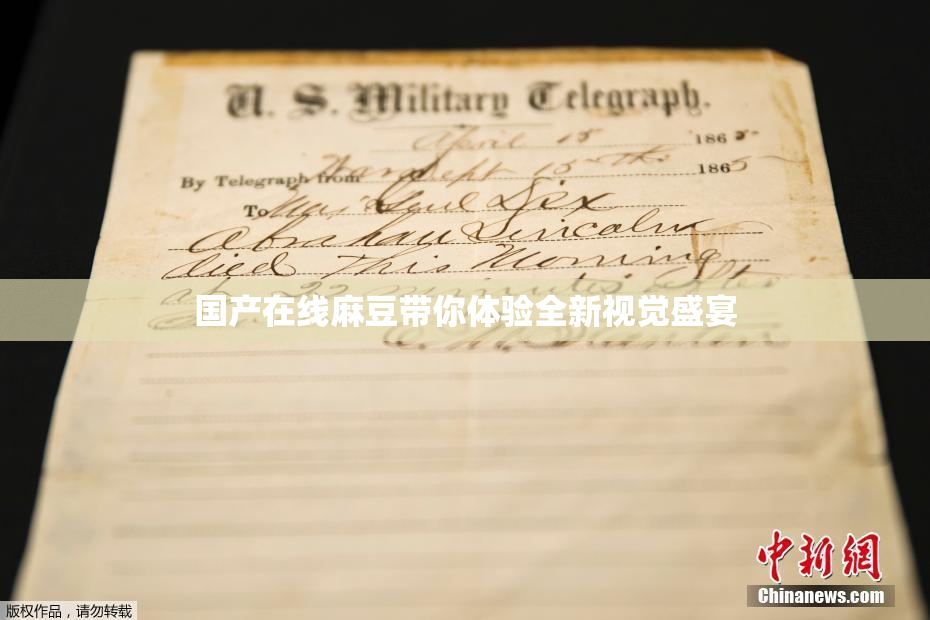 U. S. Military Telegraph.
April 15 1865
By Telegraph from War Dept 15th 1865
To Maj Genl Dix
Abraham Lincoln
died This Morning
at 22 minutes after
国产在线麻豆带你体验全新视觉盛宴
E. M. Stanton
中新网
Chinanews.com
版权作品，请勿转载